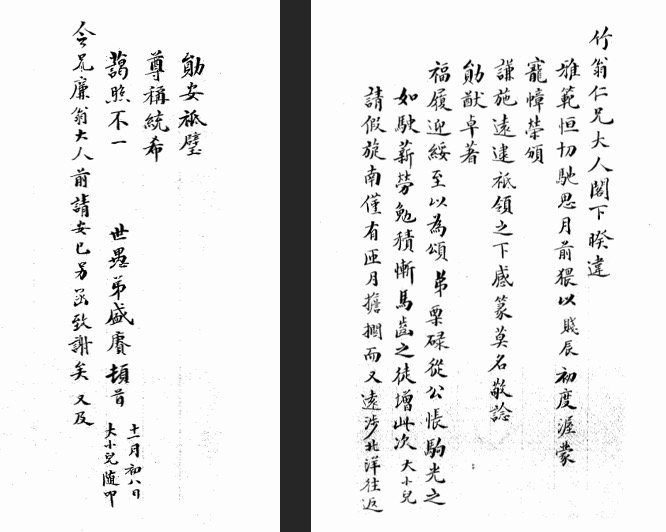 竹翁仁兄大人閣下暌違
雅範恒切馳思月前猥以賤辰初度渥蒙
寵幛榮頒
謙施遠逮祗領之下感篆莫名敬諗
勛猷卓著
福履迎綏至以為頌弟栗碌從公悵駒光之
如駛薪勞勉積慚馬齒之徒增此次大小兒
請假旋南僅有匝月擔擱而又遠涉北洋往返
勛安祗璧
尊稱統希
藹照不一
世愚弟盛賡頓首
十一月初八日
大小兒隨叩
令兄廉翁大人前請安已另函致謝矣又及